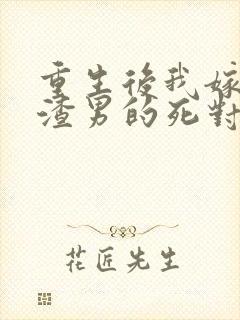 重生後我嫁
渣男的死對
花匠先生